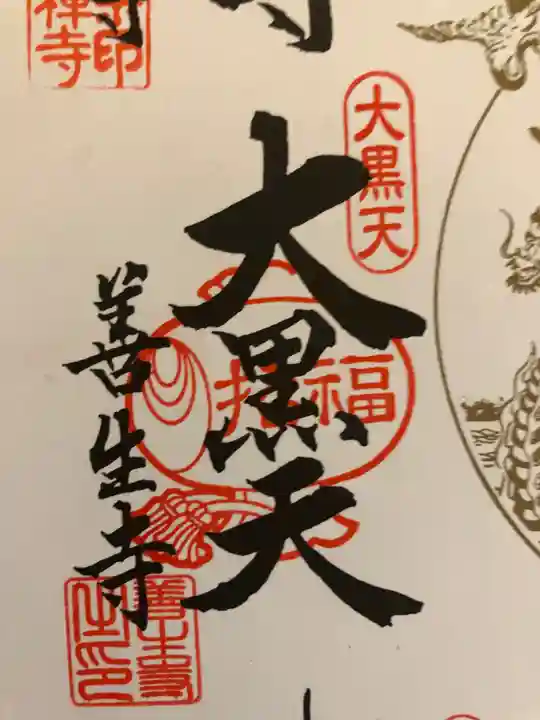 大黒天
大黒天
招福
善生寺
善生寺印
禅寺